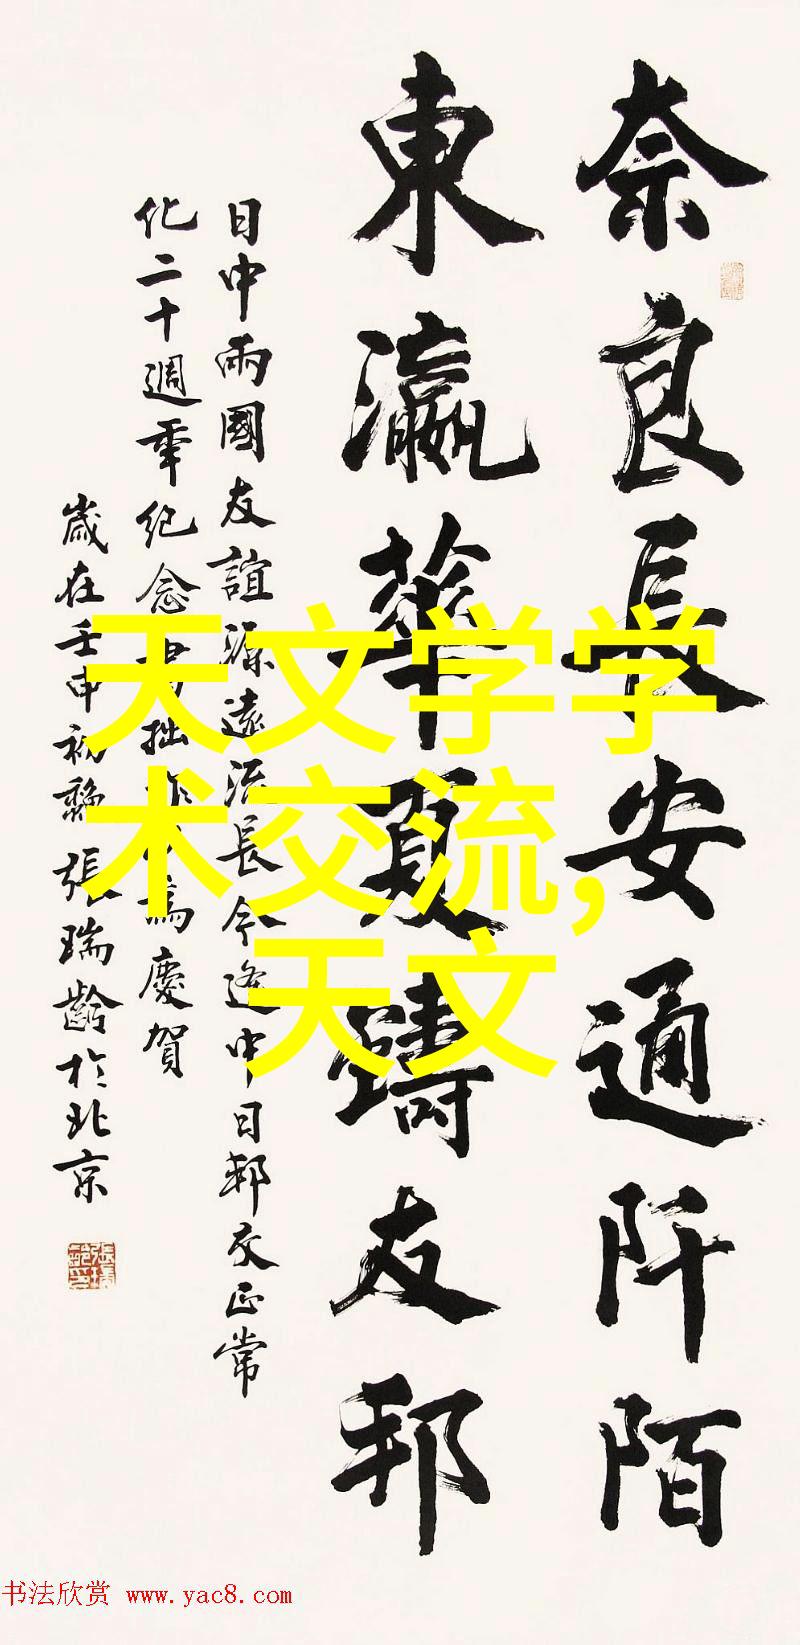 奈良長安通阡陌
東瀛華夏鑄友邦
日中兩國友誼源遠流長今逢中日邦交正常
化二十週年紀念書拙作以為慶賀
歲在壬申初秋張瑞齡於北京
天文学学
术交流，
天文
书法欣赏 www.yac8.com